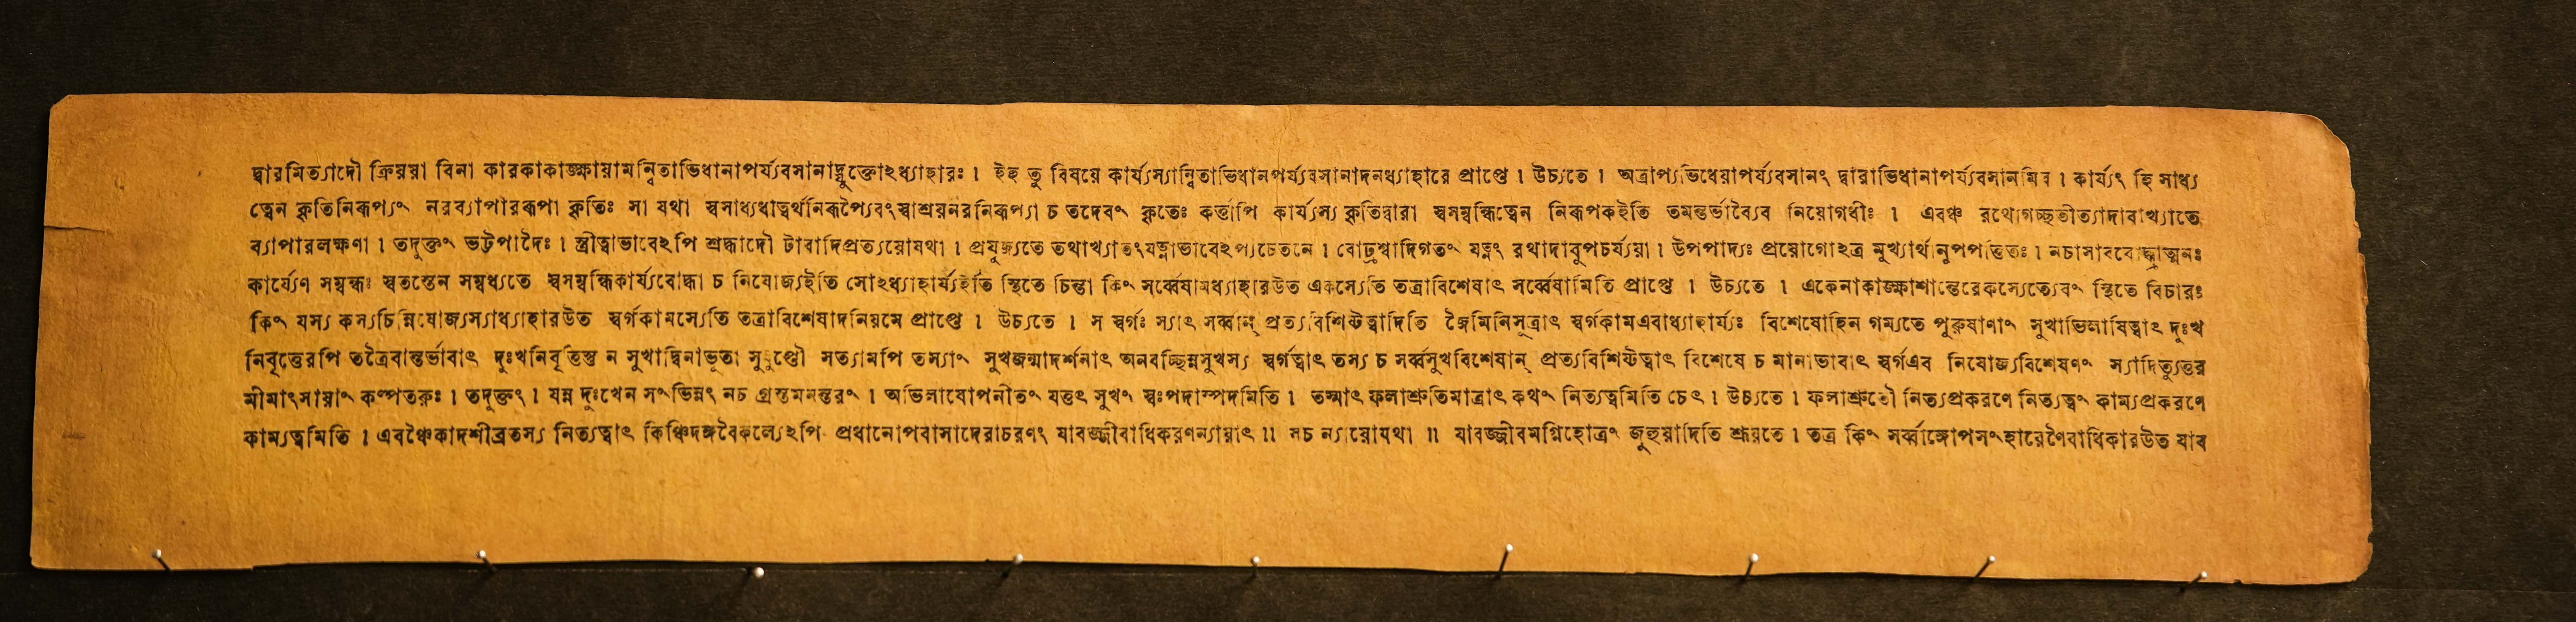 দ্বারমিত্যাদৌ ক্রিয়য়া বিনা কারকাকাঙ্ক্ষায়ামন্বিতাভিধানাপর্য্যবসানাদ্যুক্তোঽধ্যাহারঃ । ইহ তু বিষয়ে কার্য্যস্যান্বিতাভিধানপর্য্যবসানাদনধ্যাহারে প্রাপ্তে । উচ্যতে । অত্রাপ্যভিধেয়াপর্য্যবসানং দ্বারাভিধানাপর্য্যবসানমিব । কার্য্যং হি সাধ্য
ত্বেন কৃতিনিরূপ্যং নরব্যাপাররূপা কৃতিঃ সা যথা স্বসাধ্যধাত্বর্থনিরূপ্যৈবংস্বাশ্রয়নরনিরূপ্যা চ তদেবং কৃতেঃ কর্ত্তাপি কার্য্যস্য কৃতিদ্বারা স্বসম্বন্ধিত্বেন নিরূপকইতি তমন্তর্ভাব্যৈব নিয়োগধীঃ । এবঞ্চ রথোগচ্ছতীত্যাদাবাখ্যাতে
ব্যাপারলক্ষণা । তদুক্তং ভট্টপাদৈঃ । স্ত্রীত্বাভাবেঽপি শ্রদ্ধাদৌ টাবাদিপ্রত্যয়োযথা । প্রযুজ্যতে তথাখ্যাতংযত্নাভাবেঽপ্যচেতনে । বোঢ্রশ্বাদিগতং যত্নং রথাদাবুপচর্য্যয়া । উপপাদ্যঃ প্রয়োগোঽত্র মুখ্যার্থানুপপত্তিতঃ । নচাসাববোদ্ধাত্মনঃ
কার্য্যেণ সম্বন্ধঃ স্বতস্তেন সম্বধ্যতে স্বসম্বন্ধিকার্য্যবোদ্ধা চ নিযোজ্যইতি সোঽধ্যাহার্য্যইতি স্থিতে চিন্তা কিং সর্ব্বেষামধ্যাহারউত একস্যেতি তত্রাবিশেষাৎ সর্ব্বেষামিতি প্রাপ্তে । উচ্যতে । একেনাকাঙ্ক্ষাশান্তেরেকস্যেত্যেবং স্থিতে বিচারঃ
কিং যস্য কস্যচিন্নিযোজ্যস্যাধ্যাহারউত স্বর্গকামস্যেতি তত্রাবিশেষাদনিয়মে প্রাপ্তে । উচ্যতে । স স্বর্গঃ স্যাৎ সর্ব্বান্ প্রত্যবিশিষ্টত্বাদিতি জৈমিনিসূত্রাৎ স্বর্গকামএবাধ্যাহার্য্যঃ বিশেষোহিন গম্যতে পুরুষাণাং সুখাভিলাষিত্বাৎ দুঃখ
নিবৃত্তেরপি তত্রৈবান্তর্ভাবাৎ দুঃখনিবৃত্তিস্তু ন সুখাদ্বিনাভূতা সুষুপ্তৌ সত্যামপি তস্যাং সুখজন্মাদর্শনাৎ অনবচ্ছিন্নসুখস্য স্বর্গত্বাৎ তস্য চ সর্ব্বসুখবিশেষান্ প্রত্যবিশিষ্টত্বাৎ বিশেষে চ মানাভাবাৎ স্বর্গএব নিযোজ্যবিশেষণং স্যাদিত্যুত্তর
মীমাংসায়াং কল্পতরুঃ । তদুক্তং । যন্ন দুঃখেন সংভিন্নং নচ গ্রস্তমনন্তরং । অভিলাষোপনীতং যত্তৎ সুখং স্বঃপদাস্পদমিতি । তস্মাৎ ফলাশ্রুতিমাত্রাৎ কথং নিত্যত্বমিতি চেৎ । উচ্যতে । ফলাশ্রুতৌ নিত্যপ্রকরণে নিত্যত্বং কাম্যপ্রকরণে
কাম্যত্বমিতি । এবঞ্চৈকাদশীব্রতস্য নিত্যত্বাৎ কিঞ্চিদঙ্গবৈকল্যেঽপি প্রধানোপবাসাদেরাচরণং যাবজ্জীবাধিকরণন্যায়াৎ ॥ সচ ন্যায়োযথা ॥ যাবজ্জীবমগ্নিহোত্রং জুহুয়াদিতি শ্রূয়তে । তত্র কিং সর্ব্বাঙ্গোপসংহারেণৈবাধিকারউত যাব